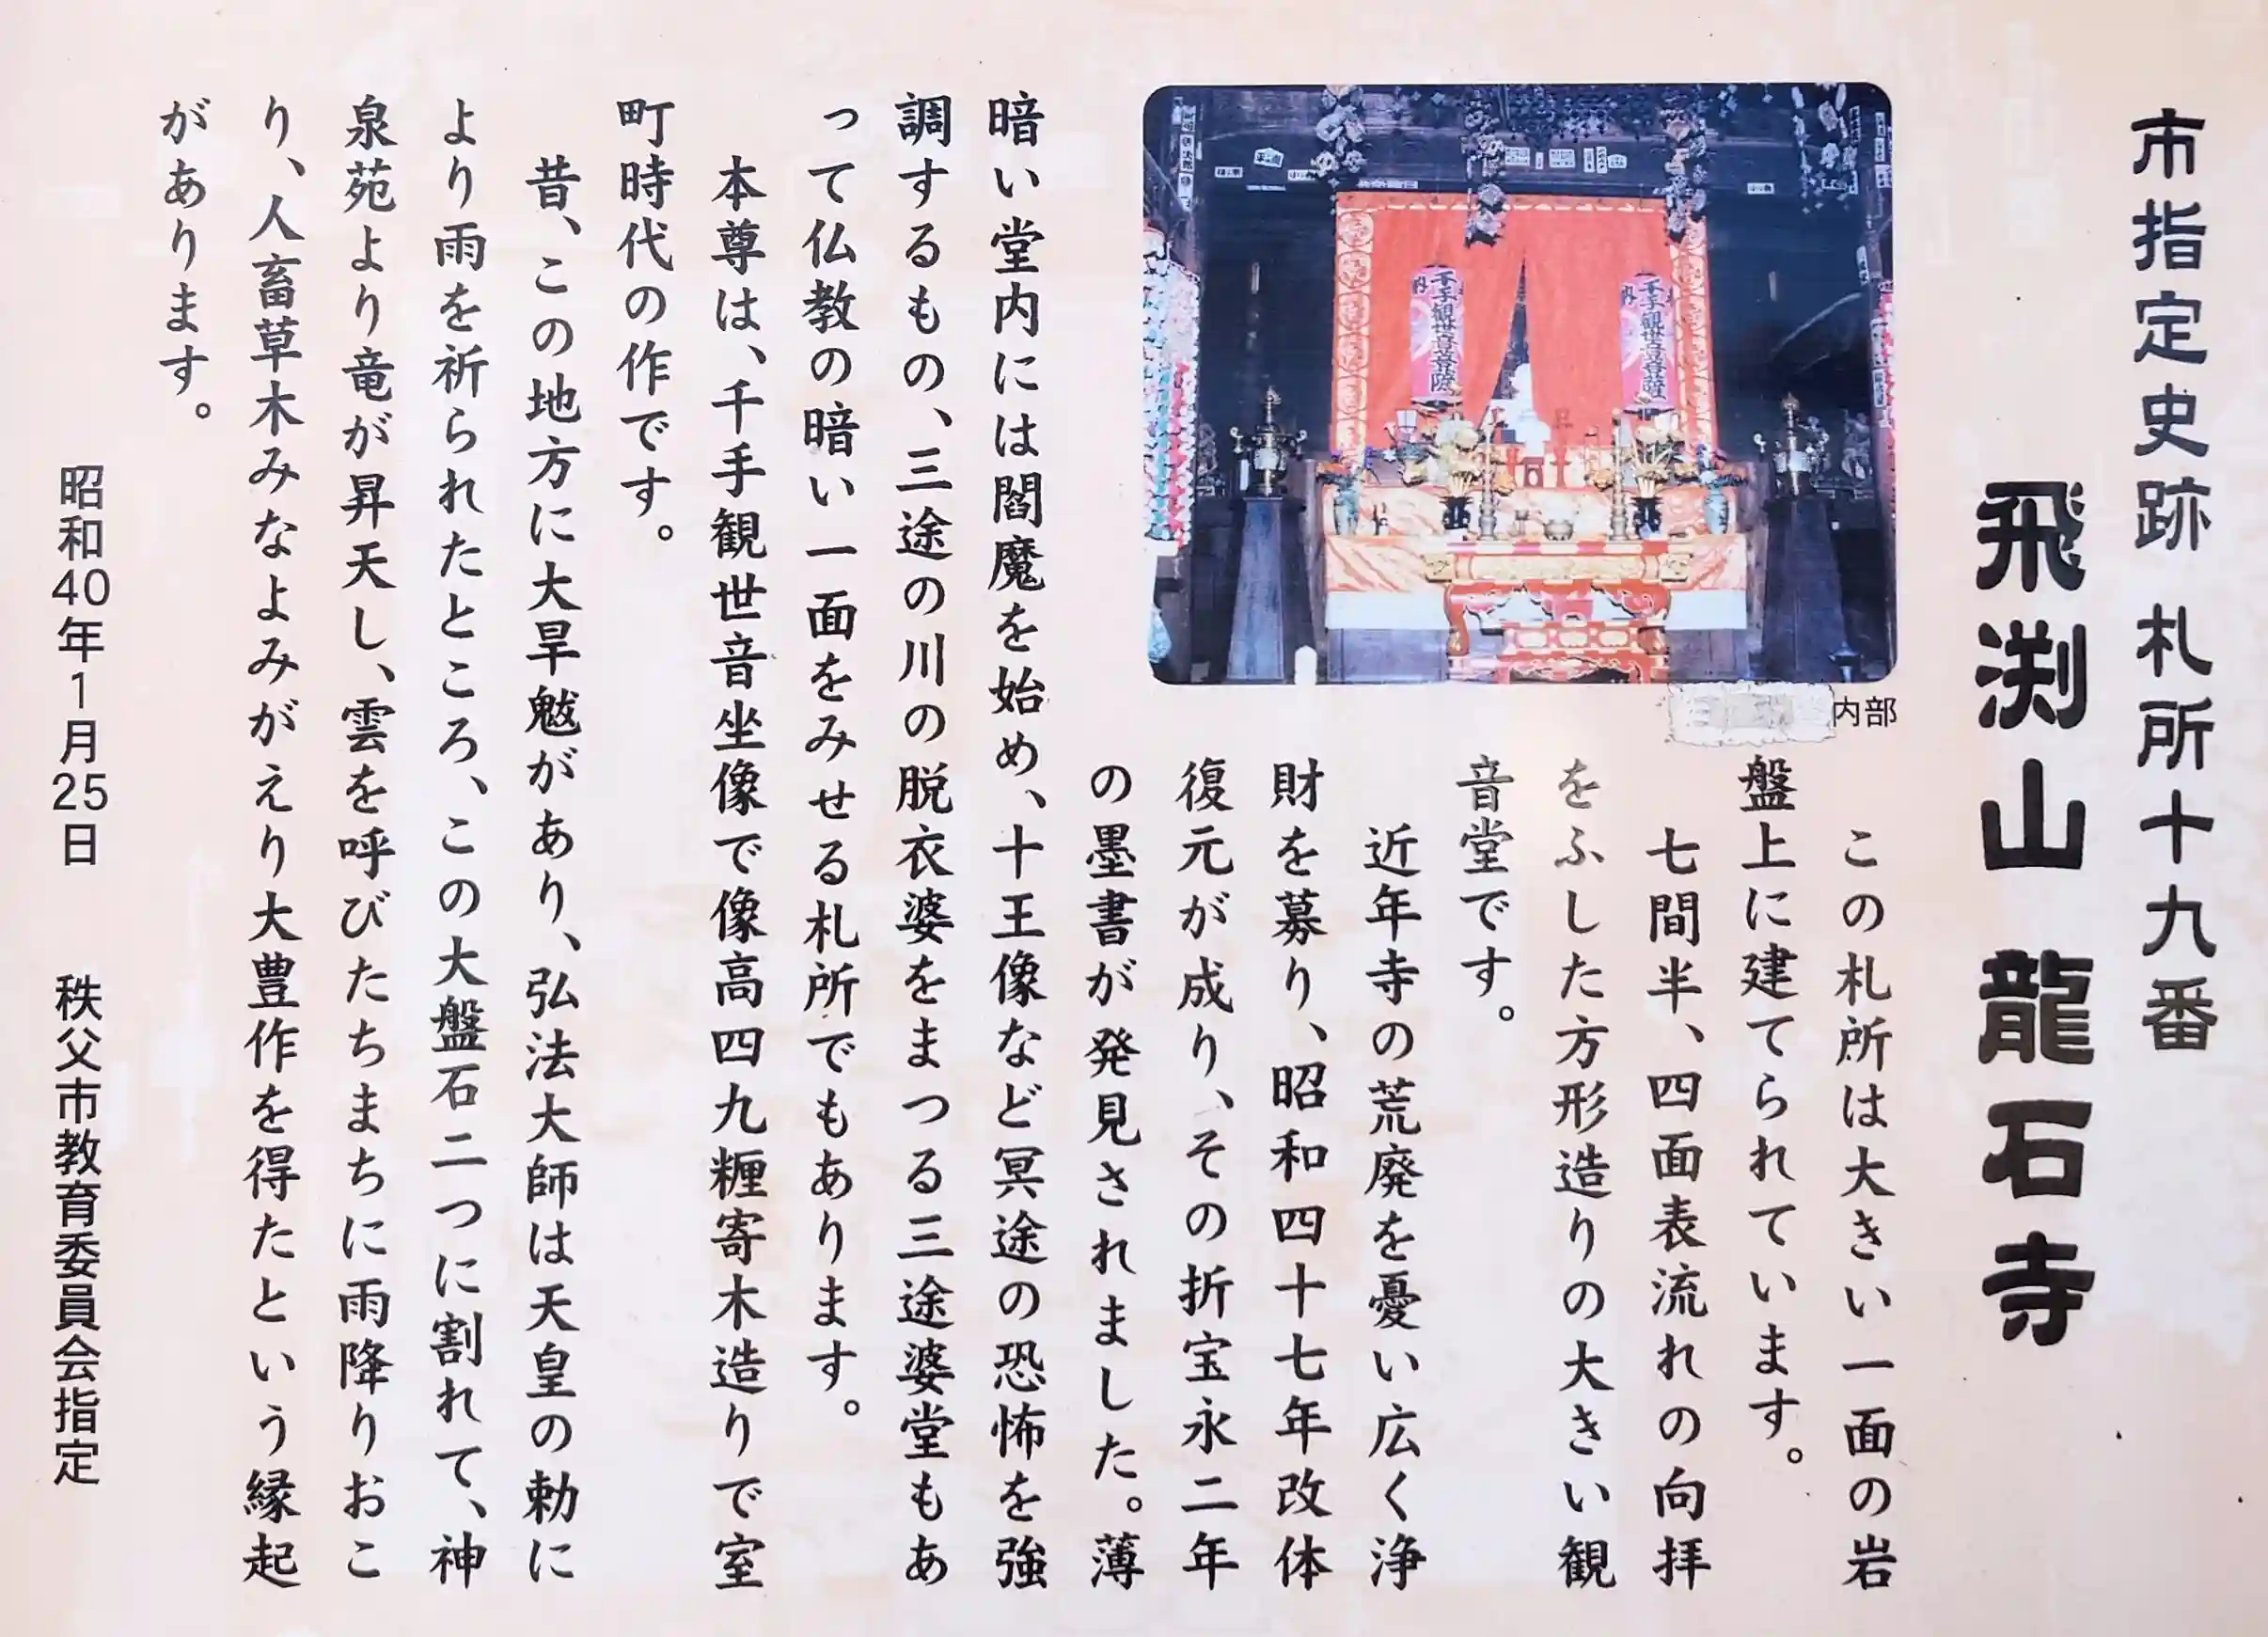 市指定史跡 札所十九番
飛渕山 龍石寺
内部
この札所は大きい一面の岩
盤上に建てられています。
七間半、四面表流れの向拝
をふした方形造りの大きい観
音堂です。
近年寺の荒廃を憂い広く浄
財を募り、昭和四十七年改体
復元が成り、その折宝永二年
の墨書が発見されました。薄
暗い堂内には閻魔を始め、十王像など冥途の恐怖を強
調するもの、三途の川の脱衣婆をまつる三途婆堂もあ
って仏教の暗い一面をみせる札所でもあります。
本尊は、千手観世音坐像で像高四九糎寄木造りで室
町時代の作です。
昔、この地方に大旱魃があり、弘法大師は天皇の勅に
より雨を祈られたところ、この大盤石二つに割れて、神
泉苑より竜が昇天し、雲を呼びたちまちに雨降りおこ
り、人畜草木みなよみがえり大豊作を得たという縁起
があります。
昭和40年1月25日 秩父市教育委員会指定
千手観世音菩薩
千手観世音菩薩